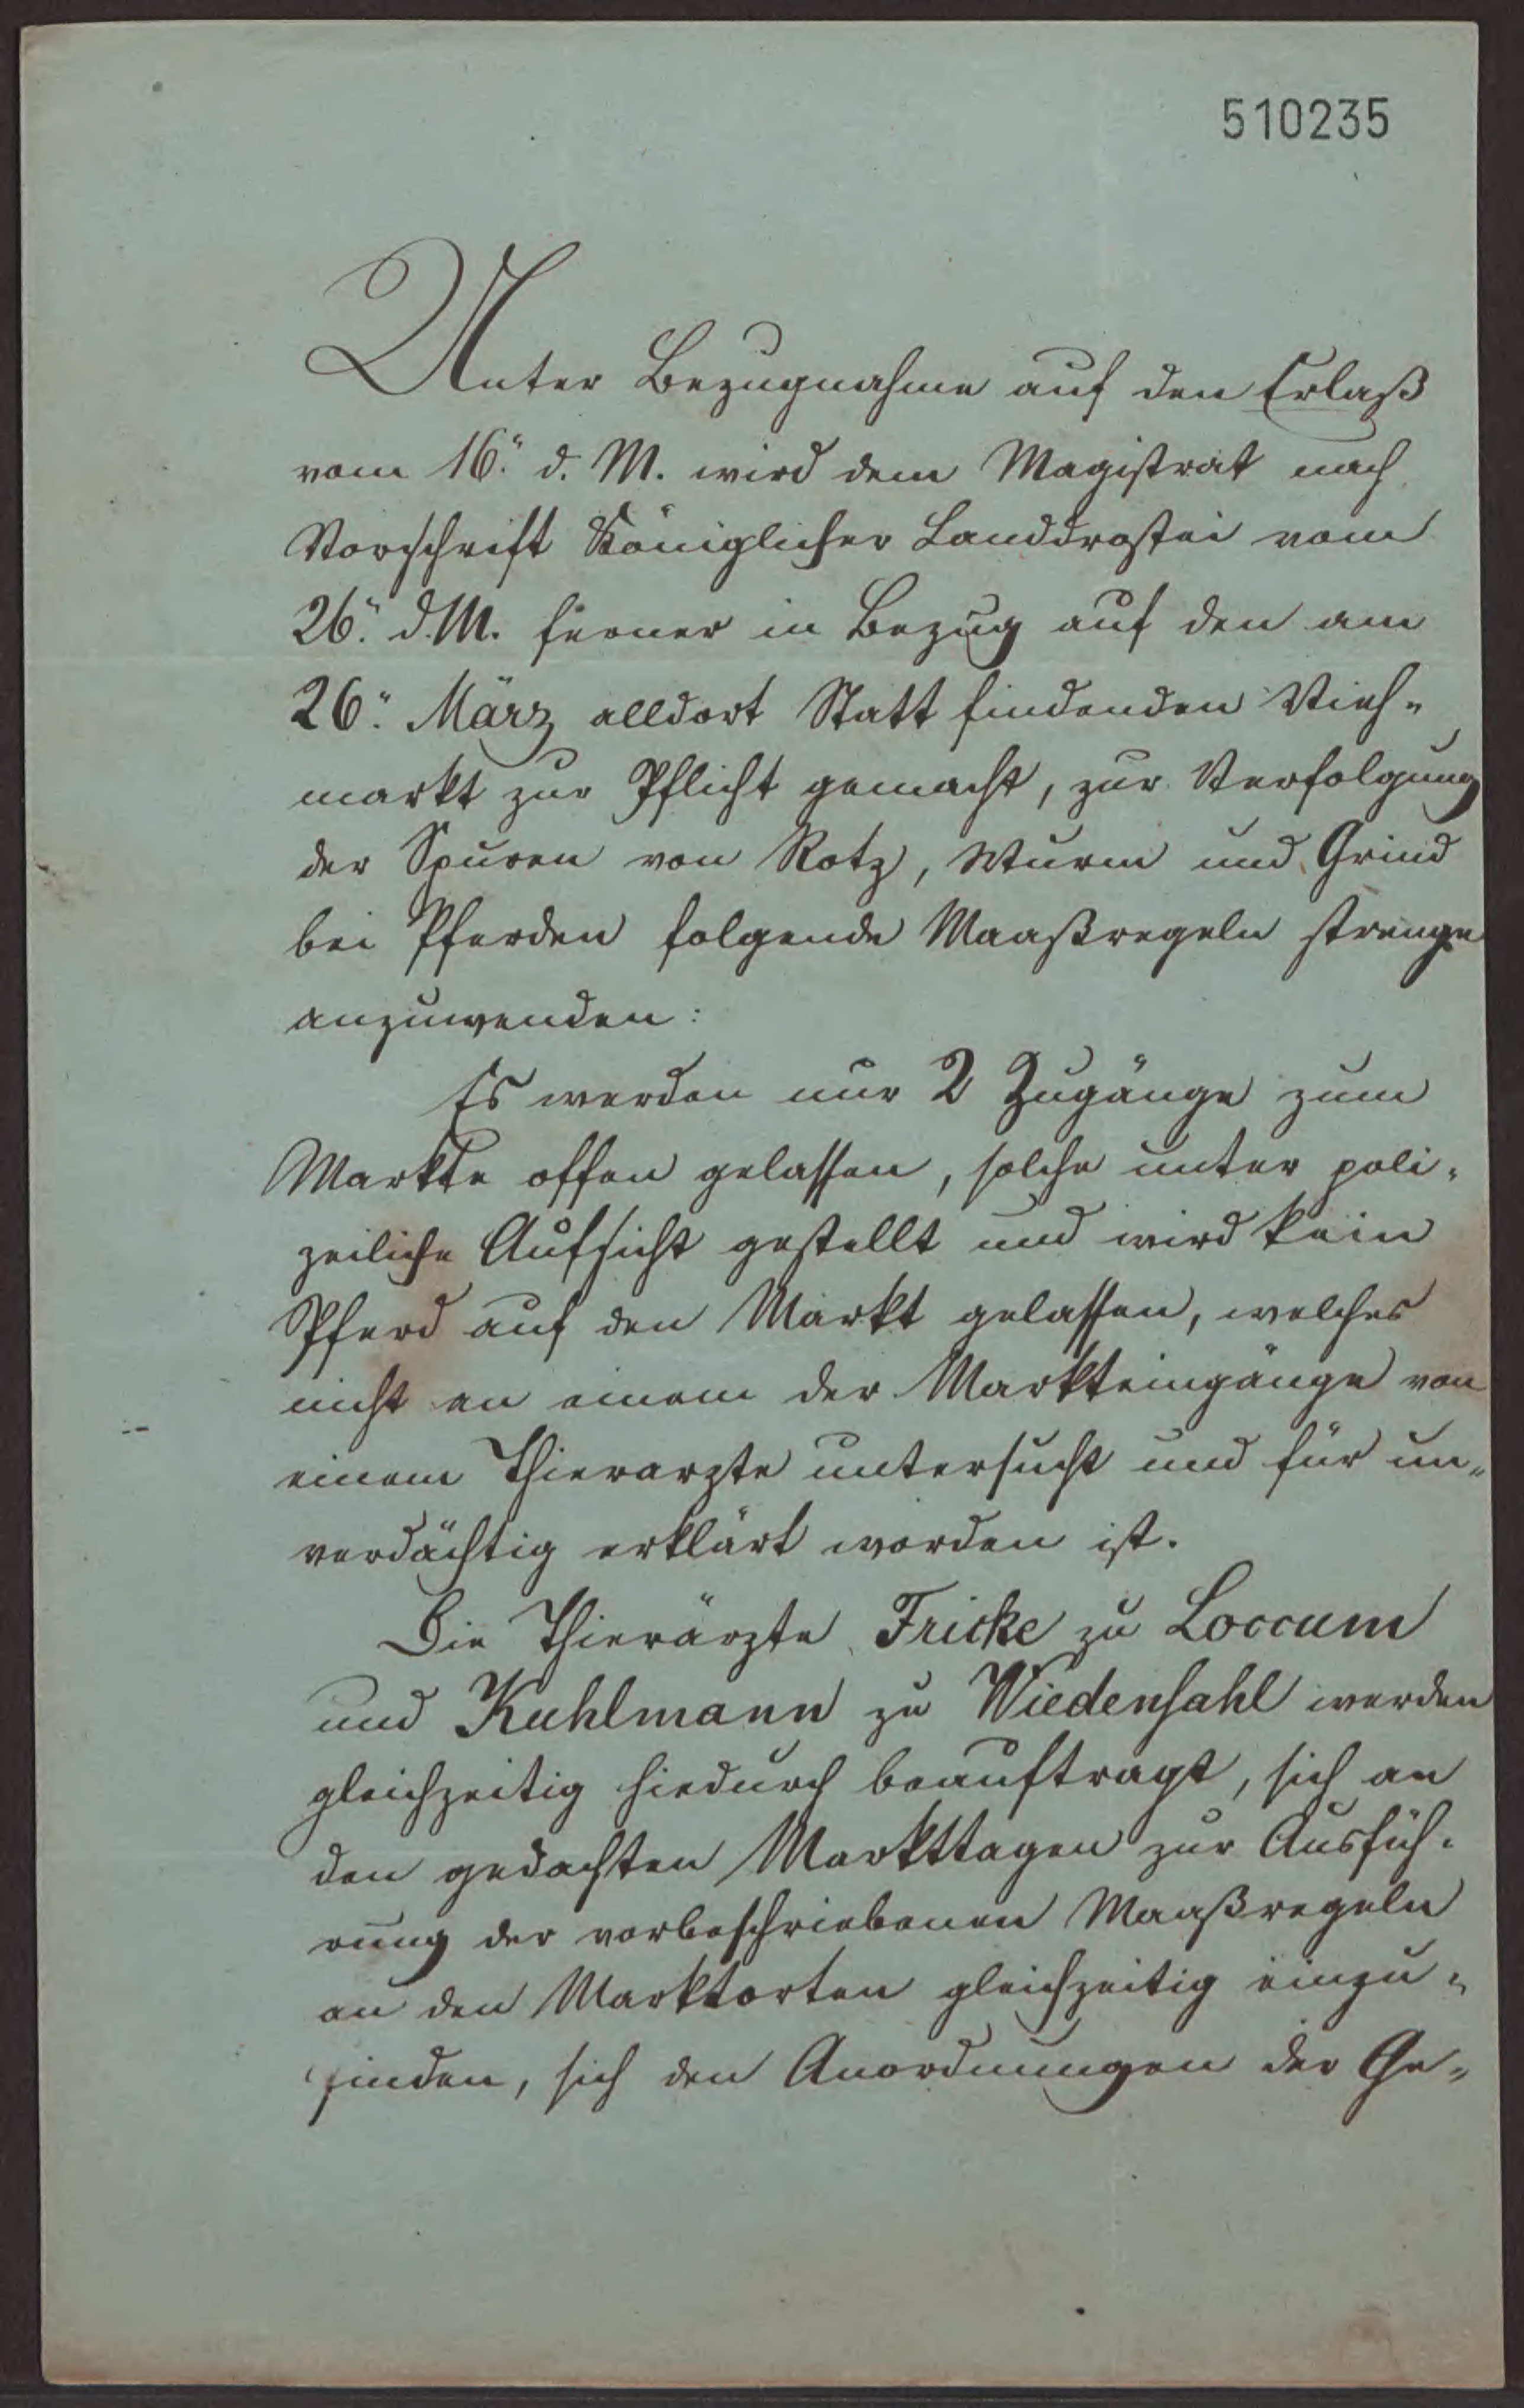 510235
Unter Bezugnahme auf den Erlaß
vom 16." d. M. wird dem Magistrat nach
Vorschrift Königlicher Landdrostei vom
26." d. M. ferner in Bezug auf den am
26." März alldort Statt findenden Vieh-
markt zur Pflicht gemacht, zur Verfolgung
der Spuren von Rotz, Wurm und Grind
bei Pferden folgende Maaßregeln strenge
anzuwenden:
Es werden nur 2 Zugänge zum
Markte offen gelassen, solche unter poli-
zeiliche Aufsicht gestellt und wird kein
Pferd auf den Markt gelassen, welches
nicht an einem der Markteingänge von
einem Thierarzte untersucht und für un-
verdächtig erklärt worden ist.
Die Thierärzte Fricke zu Loccum
und Kuhlmann zu Wiedensahl werden
gleichzeitig hiedurch beauftragt, sich an
den gedachten Markttagen zur Ausfüh-
rung der vorbeschriebenen Maaßregeln
an den Marktorten gleichzeitig einzu-
finden, sich den Anordnungen der Ge-